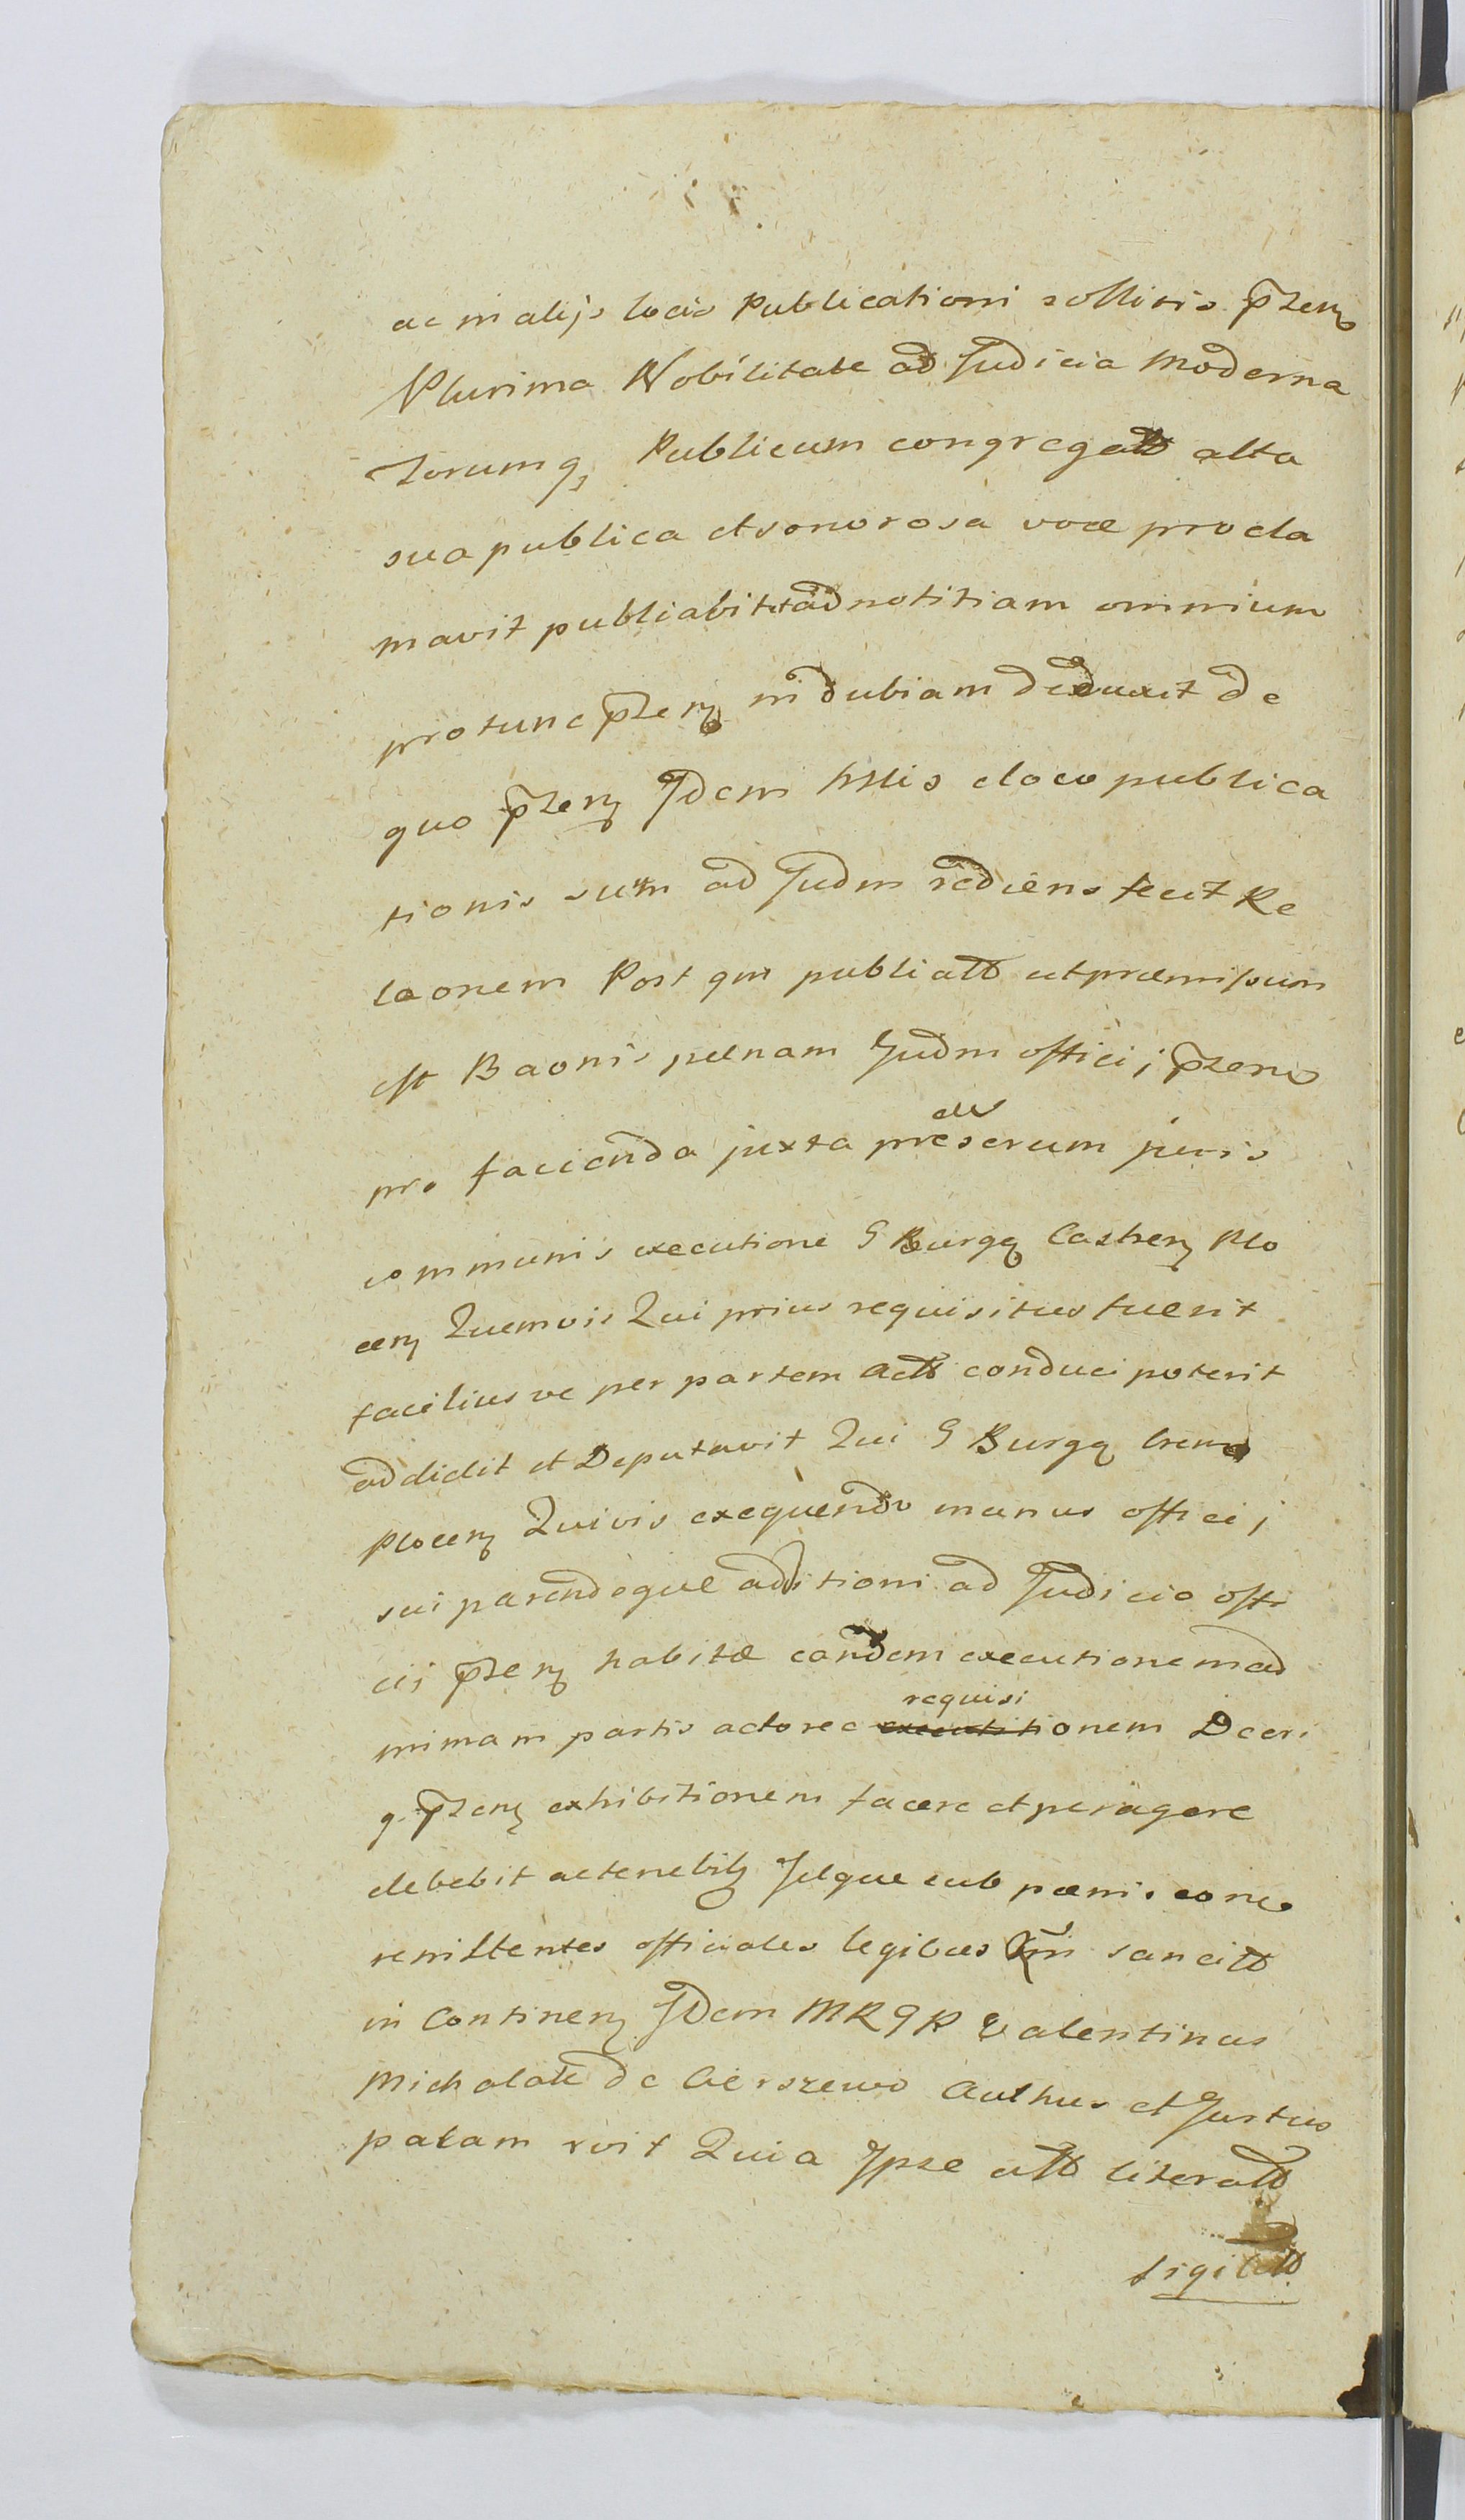 ac in alijs locis Publicationi sollitis pnzenz
Plurima Nobilitate ad Judicia Moderna
Forumq, Publicum congregatt alta
sua publica et sonorosa voce procla
mavit publiabit et ad notitiam omnium
pro tunc pnzenz indubiam deduxit de
quo pnzenz Jdem Mlis eloco publica
tionis sum ad Judm rediens fecit Re
laonem Post qm publiatt ut præmissum
est Baonis pœnam Judm officij pnzens
pro facienda juxta prescrum juris
communis executione G Burgq Castrenz Plo
cenz Quemvis Qui prius requisitus fuerit
facilius ve per partem actt conduci poterit
addidit et Deputavit Qui G Burgq
Plocenz Quivis exequendo munus officij
sui parendoque additioni ad Judicio offi
cii pnzenz habitæ eandem executionem ad
mimam partis actorea requisitionem Dceri
q. pnzenz exhibitionem facere et peragere
debebit ac tenebitz Jdque sub pœnis conca
renittentes officiales legibus Rni sancitt
in Continenz Jdem MRGR Valentinus
Michalak de Cierszewo Authus et Jurtus
palam rvit Quia Jpse att literatt
sigillatt